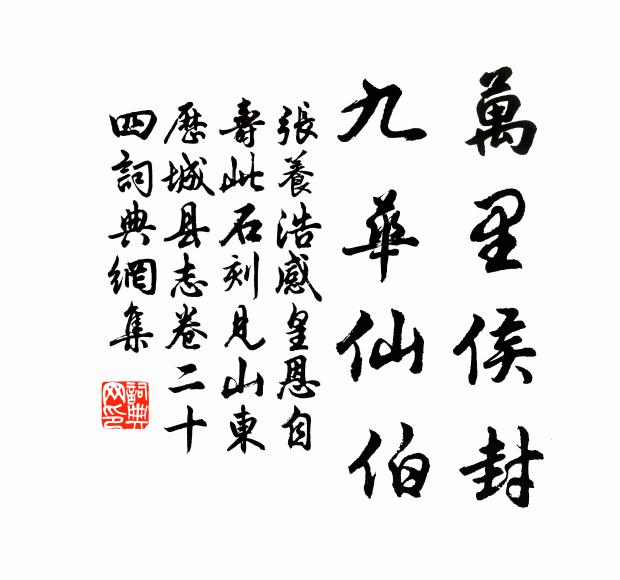 萬里侯封
九華仙伯
張養浩感皇恩自
壽此石刻見山東
歷城县志卷二十
四詞典網集
詞典網印